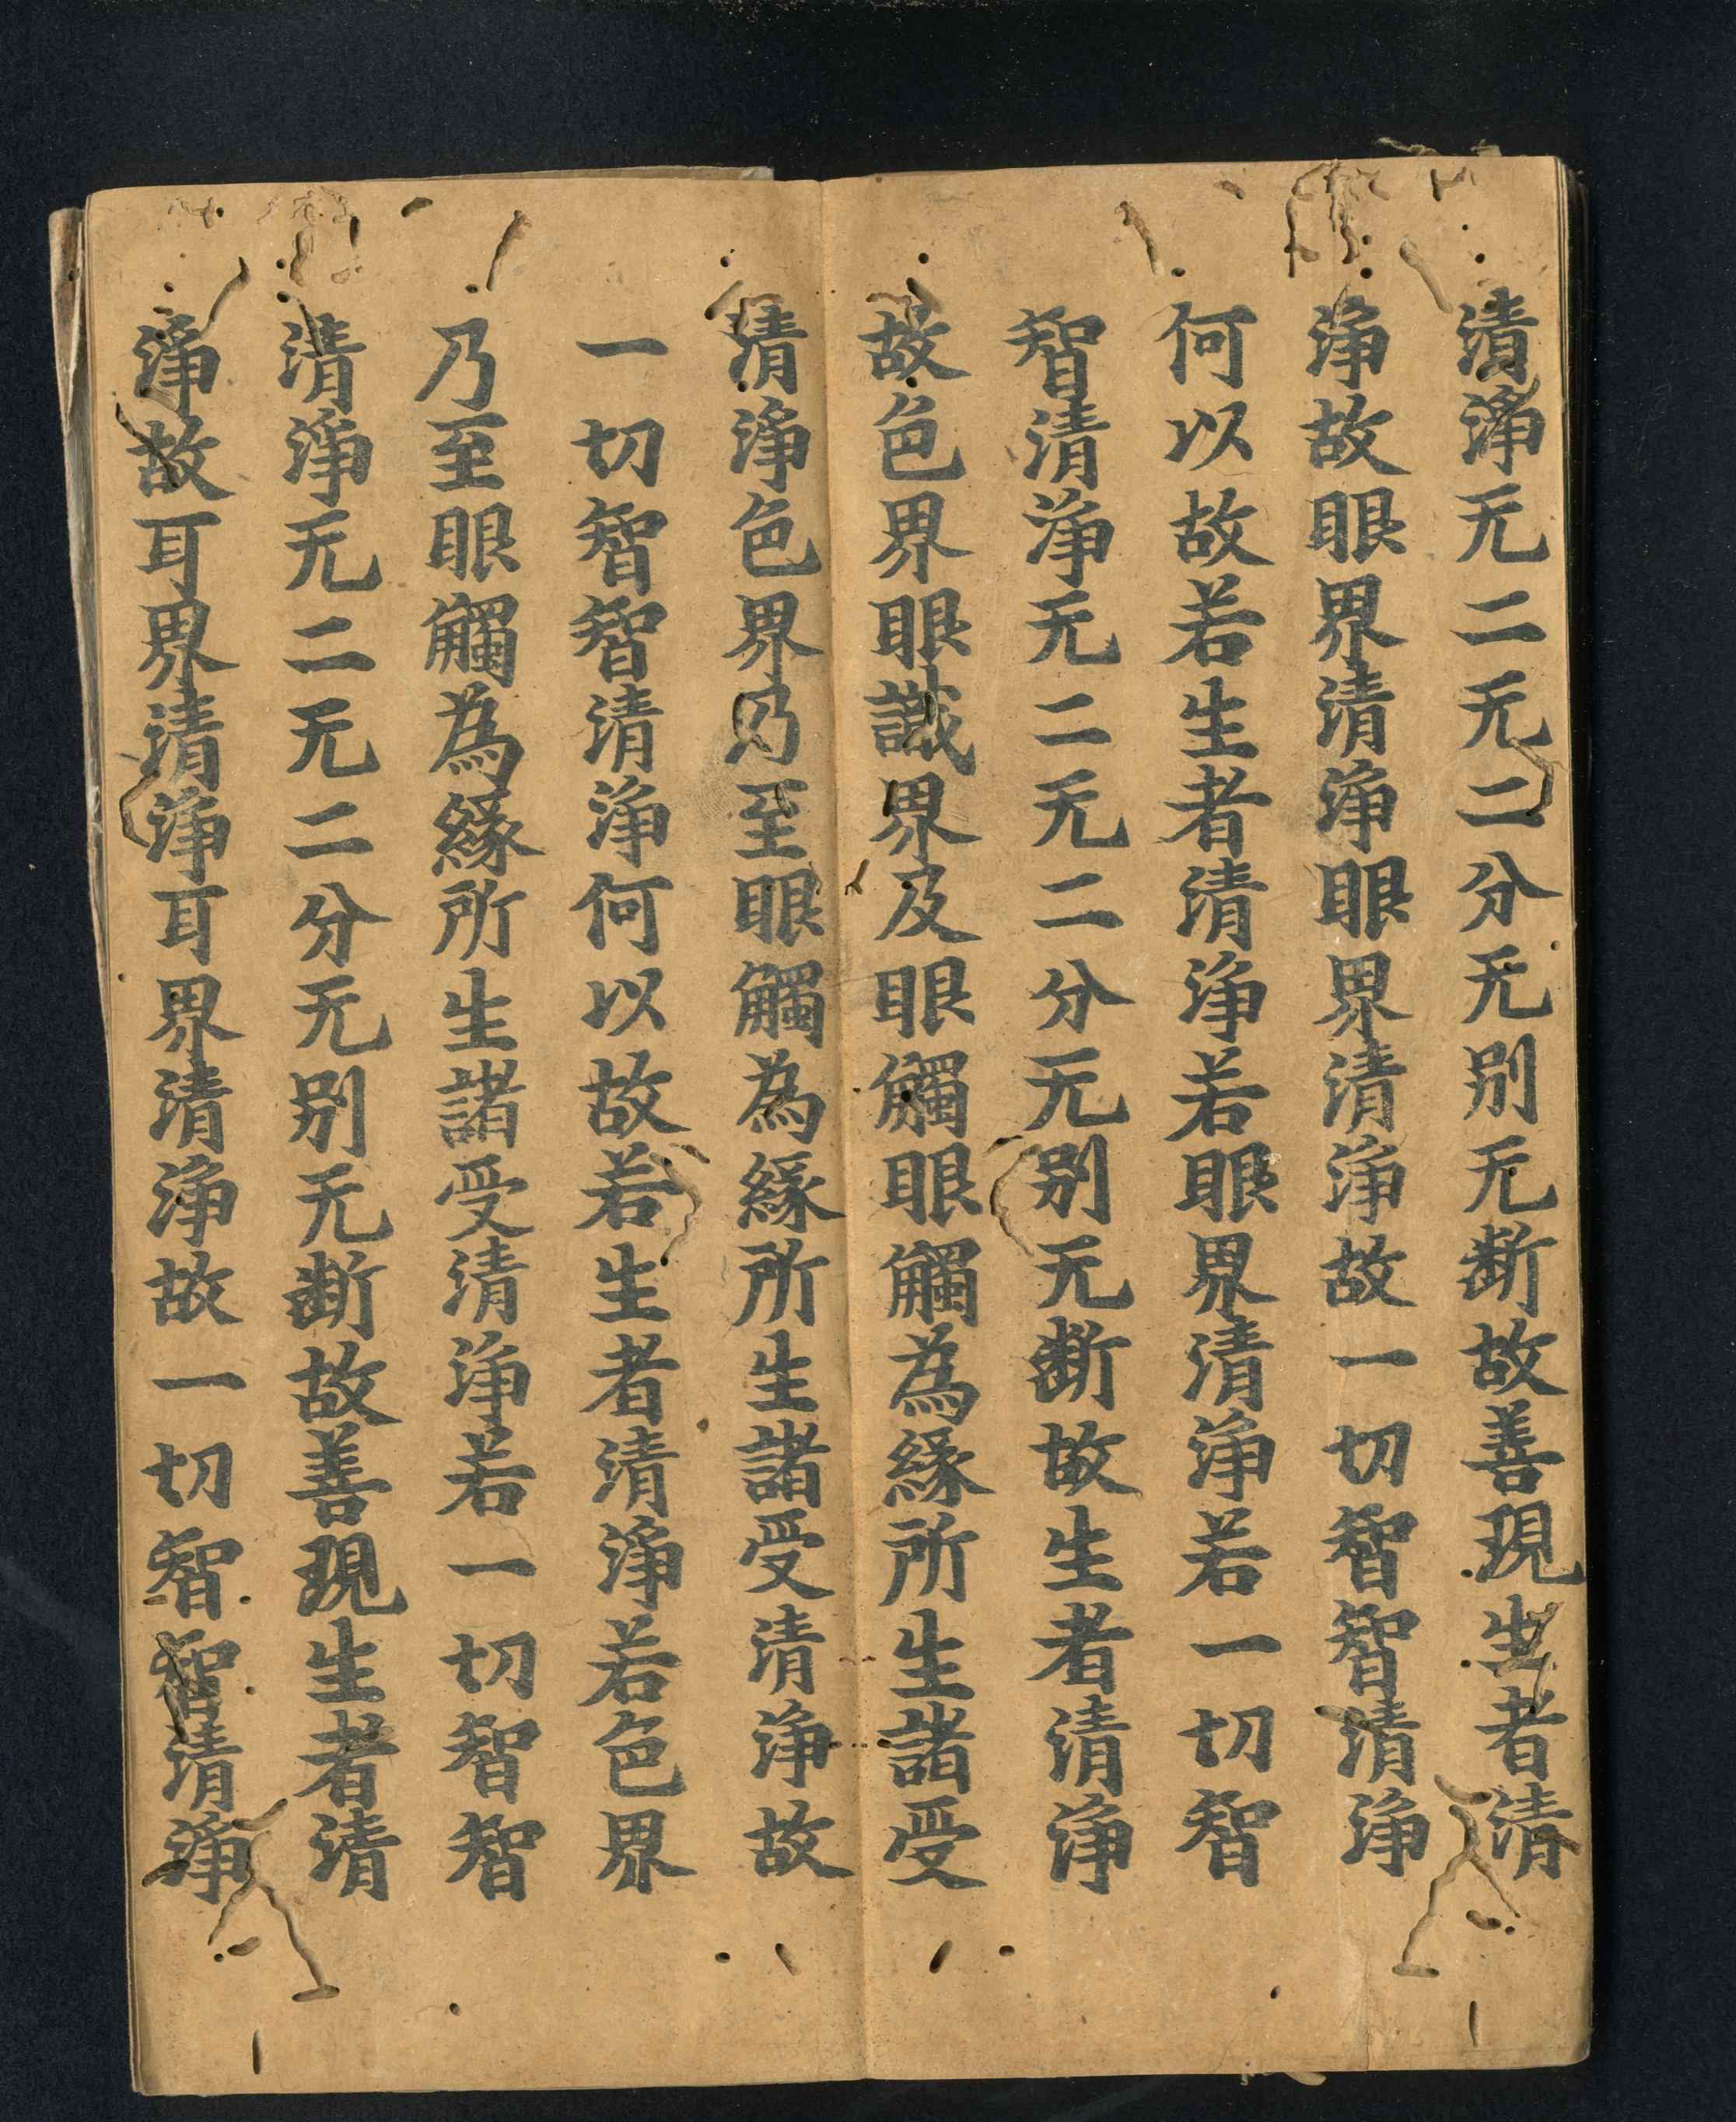 清淨无二无二分无别无断故善現生者清
淨故眼界清淨眼界清淨故一切智智清淨
何以故若生者清淨若眼界清淨若一切智
智清淨无二无二分无别无断故生者清淨
故色界眼識界及眼觸眼觸為緣所生諸受
清淨色界乃至眼觸為緣所生諸受清淨故
一切智智清淨何以故若生者清淨若色界
乃至眼觸為緣所生諸受清淨若一切智智
清淨无二无二分无别无断故善現生者清
淨故耳界清淨耳界清淨故一切智智清淨